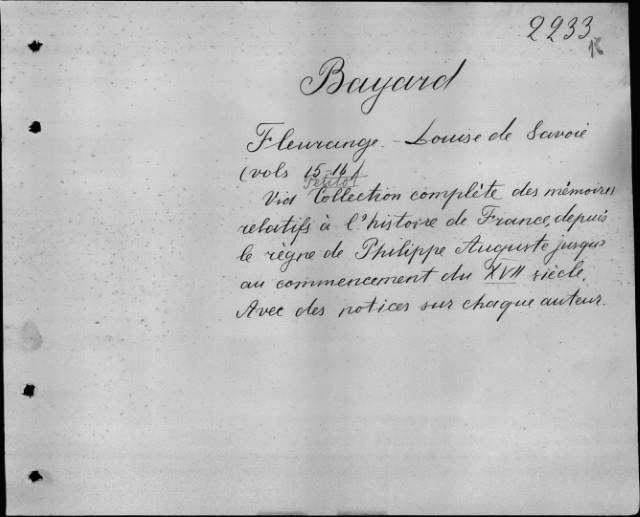 2233
Bayard
Fleurange. - Louise de Savoie
(vols 15-16)
Petitot
Vid Collection complète des mémoires
relatifs à l'histoire de France, depuis
le règne de Philippe Auguste jusqu'
au commencement du XVII siècle.
Avec des notices sur chaque auteur.